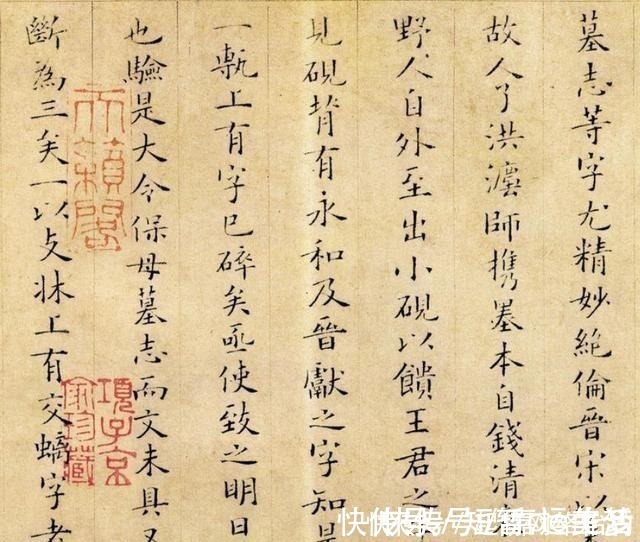 墓志等字尤精妙絕倫晉宋以
故人了洪瀍師携墨本自錢清
野人自外至出小硯以饋王君之
見硯背有永和及晉獻之字知是
一甎上有字已碎矣亟使致之明日
也驗是大令保母墓志而文未具又
斷為三矣一以支牀上有交螭字者
天籟閣
項子京
家珍藏